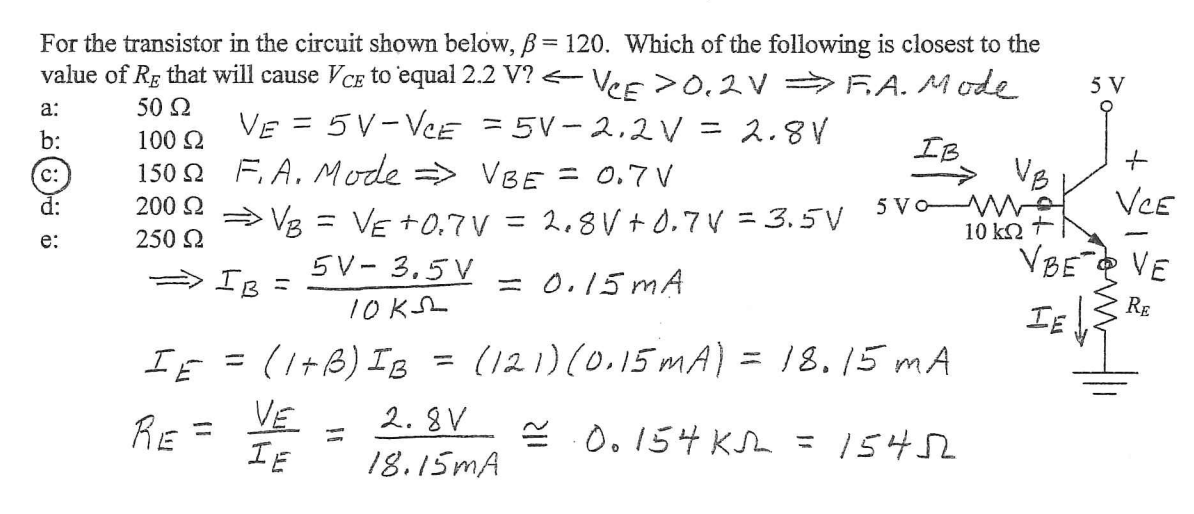 For the transistor in the circuit shown below, β = 120. Which of the following is closest to the
value of R_E that will cause V_CE to equal 2.2 V? ← V_CE > 0.2 V ⇒ F.A. Mode
a: 50 Ω
b: 100 Ω
c: 150 Ω
d: 200 Ω
e: 250 Ω
V_E = 5V - V_CE = 5V - 2.2V = 2.8V
F.A. Mode ⇒ V_BE = 0.7V
⇒ V_B = V_E + 0.7V = 2.8V + 0.7V = 3.5V
⇒ I_B = (5V - 3.5V) / 10KΩ = 0.15mA
I_E = (1+β) I_B = (121)(0.15mA) = 18.15 mA
R_E = V_E / I_E = 2.8V / 18.15mA ≅ 0.154KΩ = 154Ω
5 V
I_B
V_B
+
V_CE
-
5 V
10 kΩ
+
V_BE
-
V_E
I_E
R_E